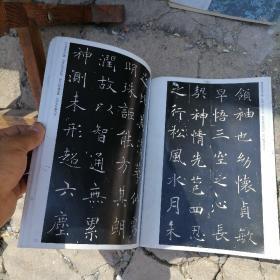 領袖也幼懷貞敏
早悟三空之心長
契神情先苞四忍
之行松風水月未
足比其清華仙露
明珠詎能方其朗
潤故以智通無累
神測未形超六塵